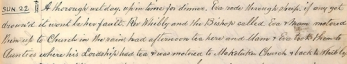 SUN. 22 A thorough wet day, & in time for dinner. Eva rode through & if any got
drown'd it wont be her fault. Rev Whibley and the Bishop called Eva & Mum motored
him up to Church in the rain, had afternoon tea here and Mum & Eva took them to
Aunties where his Lordship had tea & was motored to Makotuku Church & back to Whibley